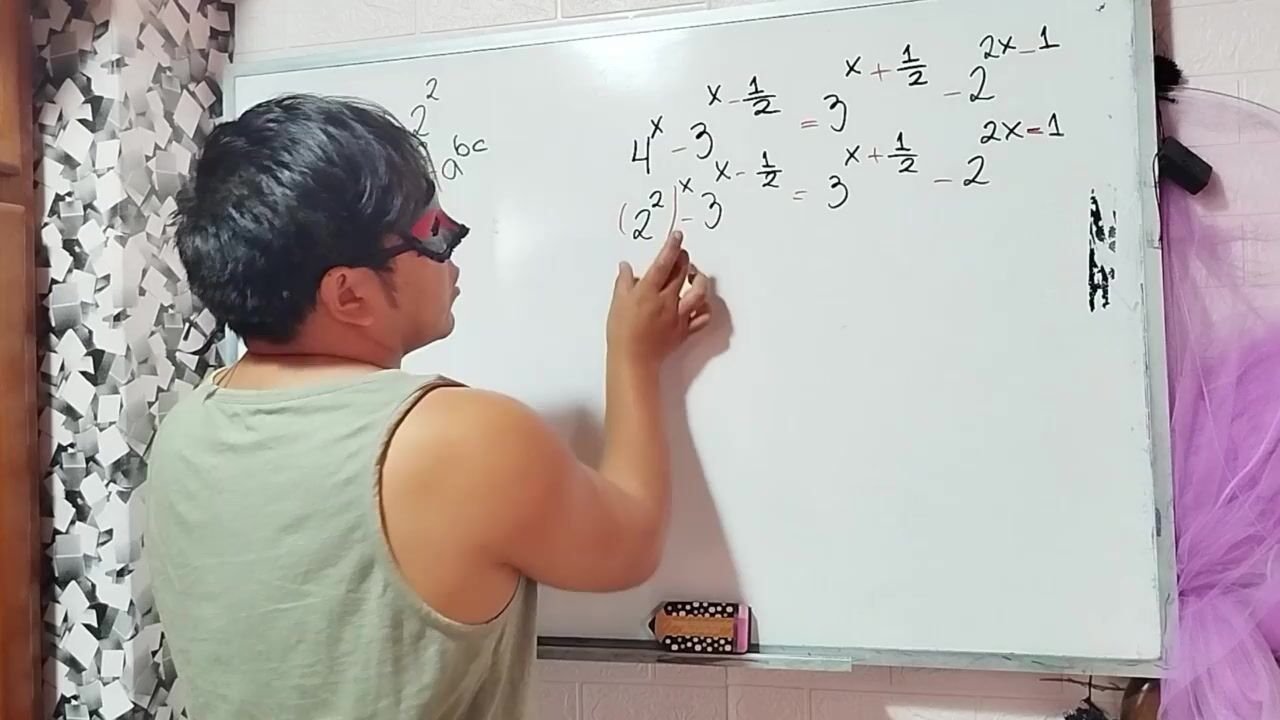 2²
a^bc
4^x - 3^(x - 1/2) = 3^(x + 1/2) - 2^(2x - 1)
(2²)^x - 3^(x - 1/2) = 3^(x + 1/2) - 2^(2x - 1)